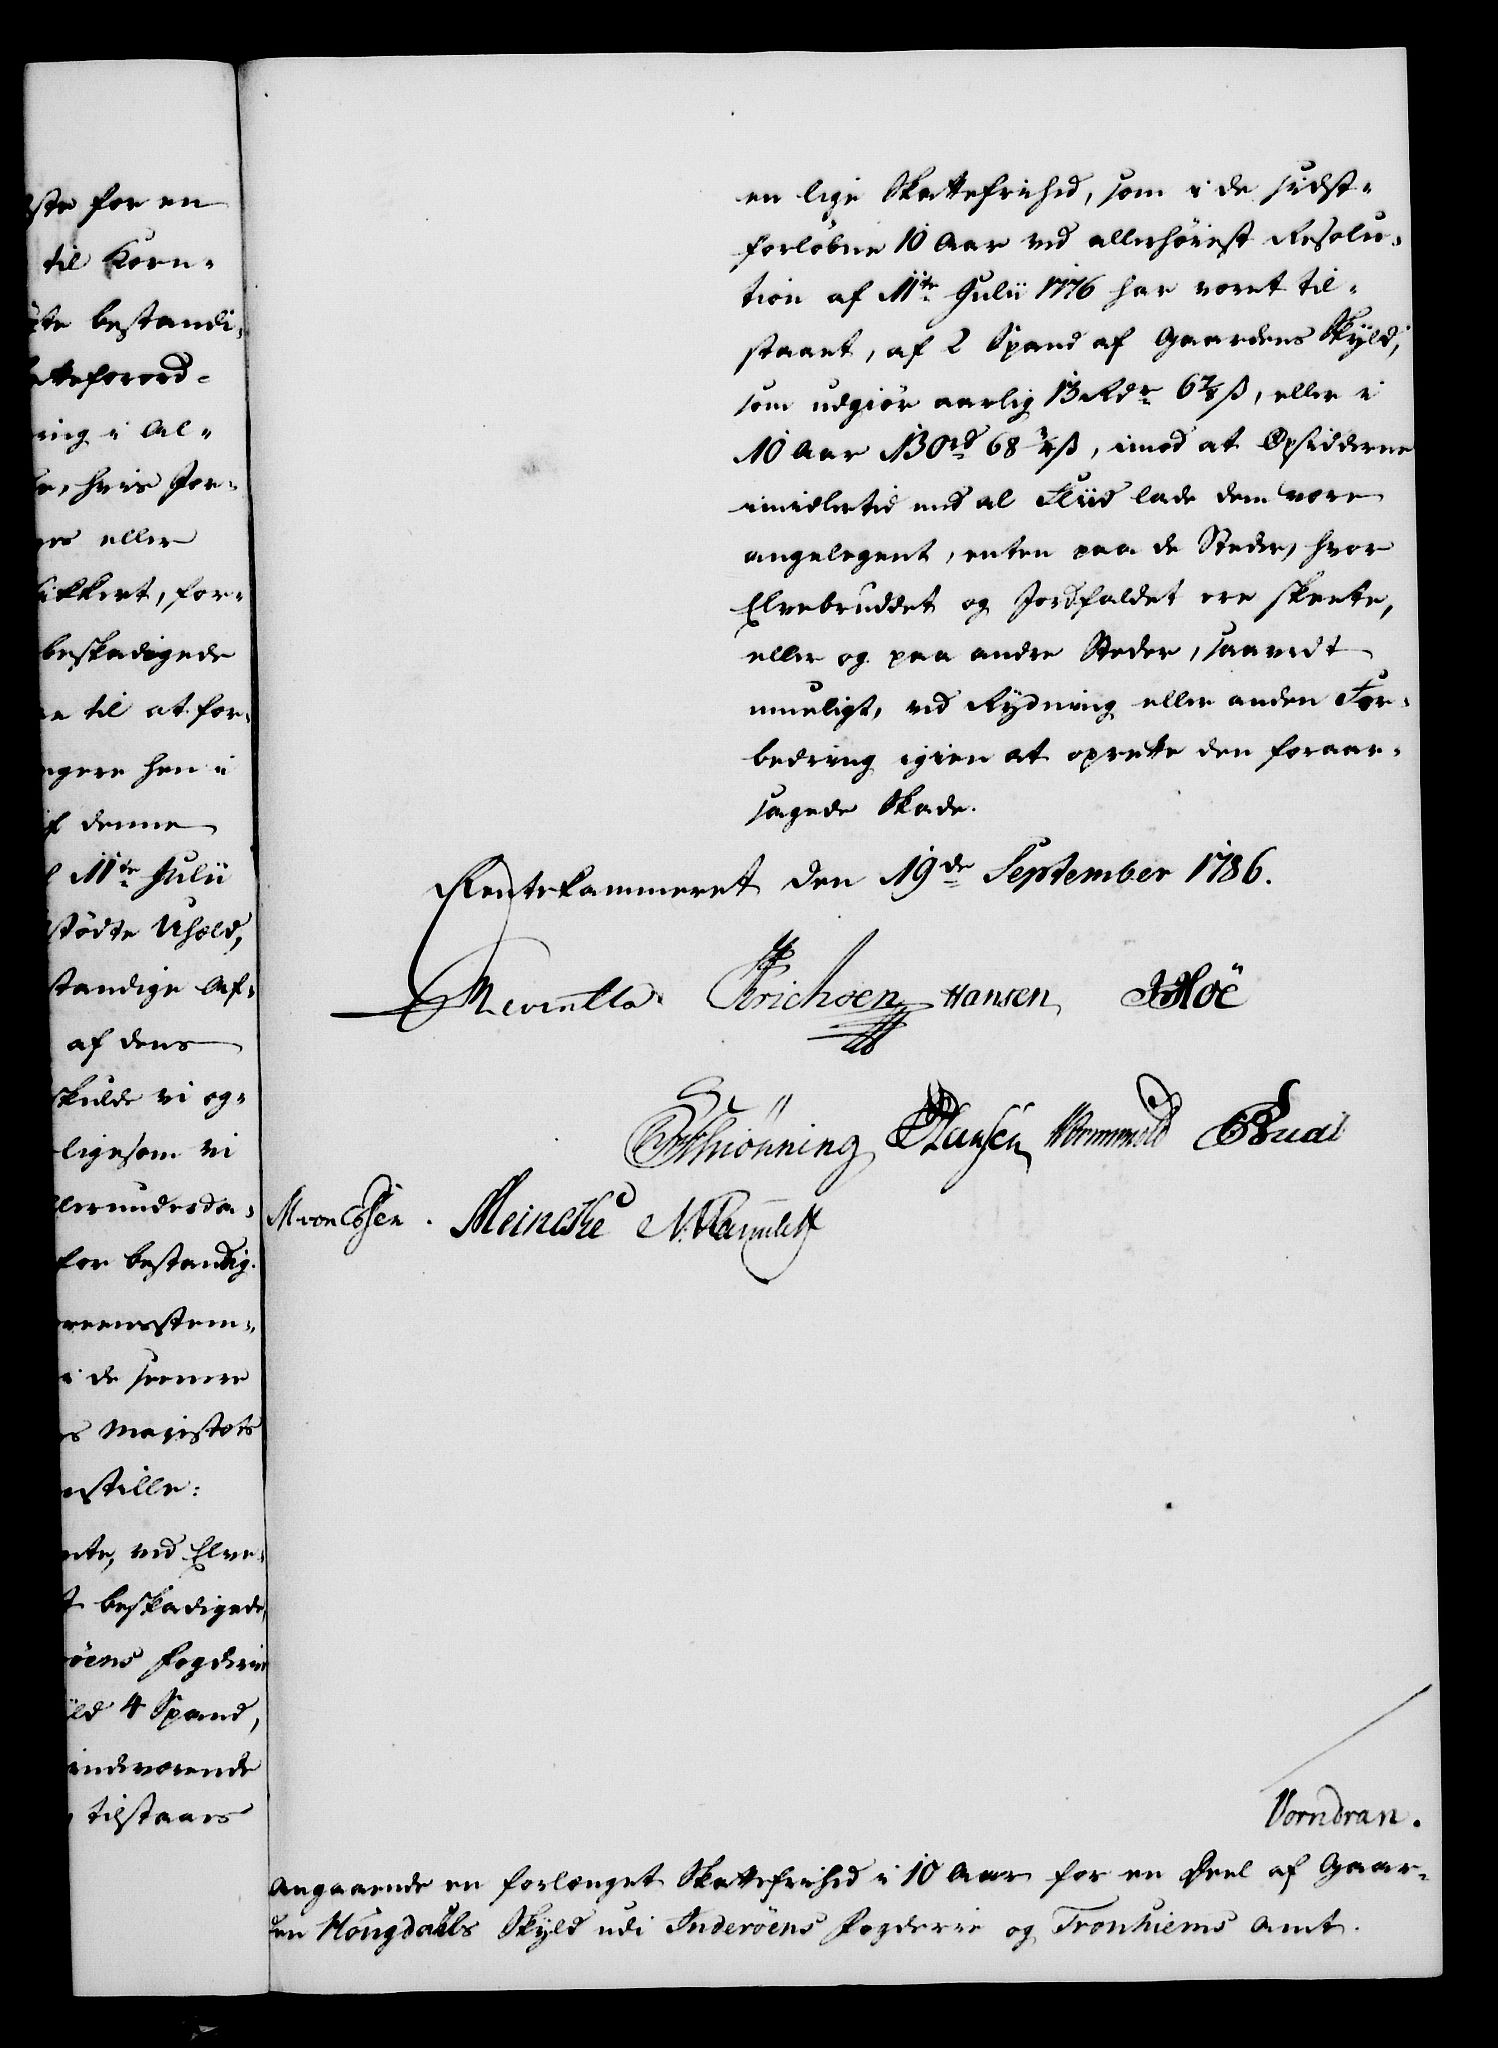 ste for en
til Korn-
te bestandi-
atteforord-
ring i Al-
hvis Jor-
eller
sikkert, for-
beskadigede
til at for-
gere hen i
af denne
11te Julii
stödte Uheld,
standige Af-
af dens
skulde vi og-
ligesom vi
allerunderda-
for bestandig
overensstem-
i de senere
Magistats
stille:
ved Elve-
beskadigede,
röens Fogderie
4 Spand,
indeværende
tilstaaes
en lige Skattefrihed, som i de sidst-
forløbne 10 Aar ved allerhöiest Resolu-
tion af 11te Julii 1776 har været til-
staaet, af 2 Spand af Gaardens Skyld,
som udgiør aarlig 13 Rdr 6⅞ ß, eller i
10 Aar 130rd 68¾ ß, imod at Opsidderne
imidlertid med al Fliid lade dem være
angelegent, enten paa de Steder, hvor
Elvebruddet og Jordfaldet ere skeete,
eller og paa andre Steder, saavidt
mueligt, ved Rydning eller anden For-
bedring igien at oprette den foraar-
sagede Skade.
Rentekammeret den 19de September 1786.
Erichsen Hansen Höe
Schiönning Hansen Wormskiold
M von Essen. Meincke
Vorndran.
Angaaende en forlænget Skattefrihed i 10 Aar for en Deel af Gaar-
den Hougdahls Skyld udi Inderöens Fogderie og Tronhiems Amt.